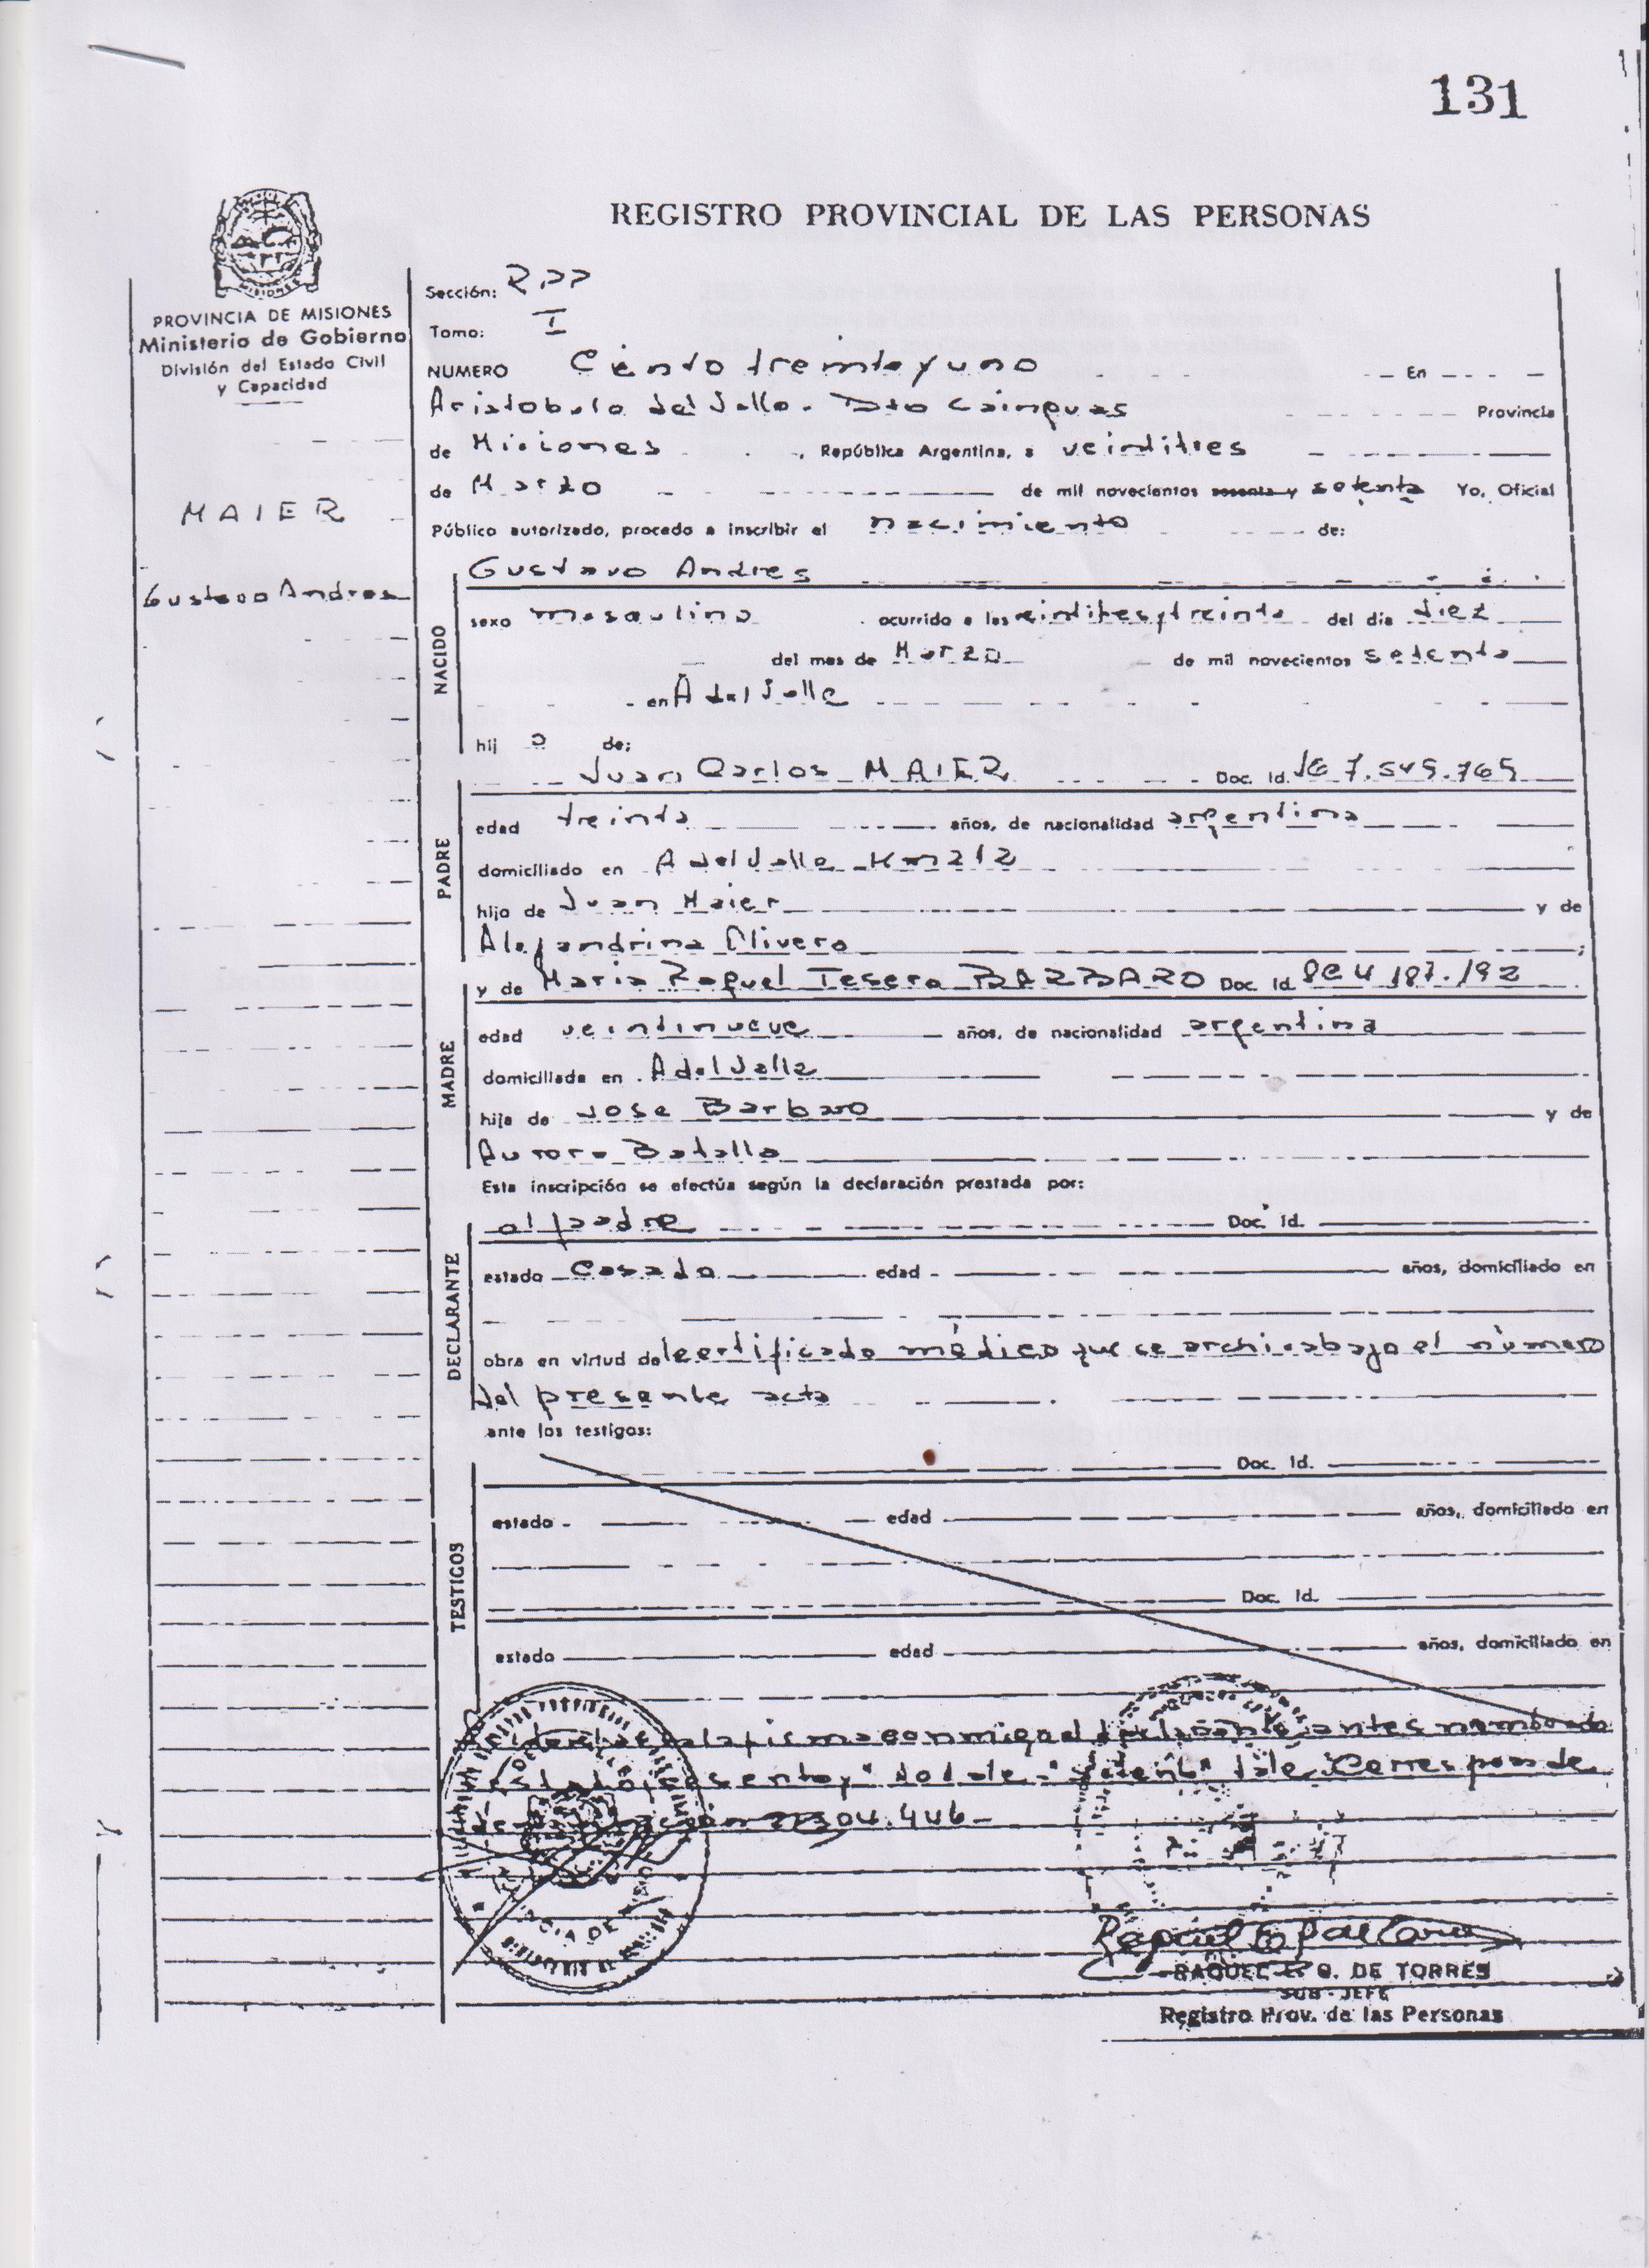 131
REGISTRO PROVINCIAL DE LAS PERSONAS
MISIONES
PROVINCIA DE MISIONES
Ministerio de Gobierno
División del Estado Civil
y Capacidad
MAIER
Gustavo Andres
Sección: RPP
Tomo: I
NUMERO Ciento treinta y uno En
Aristobulo del Valle - Dto Cainguas Provincia
de Misiones, República Argentina, a veintitres
de Marzo de mil novecientos sesenta y setenta Yo, Oficial
Público autorizado, procedo a inscribir el nacimiento de:
NACIDO
Gustavo Andres
sexo masculino ocurrido a las veintitres y treinta del día diez
del mes de Marzo de mil novecientos setenta
en A del Valle
hij o de:
PADRE
Juan Carlos MAIER Doc. Id. 7.549.765
edad treinta años, de nacionalidad argentina
domiciliado en A del Valle Km 212
hijo de Juan Maier y de
Alejandrina Olivera;
MADRE
y de Maria Raquel Tesera BARBARO Doc. Id.
edad veintinueve años, de nacionalidad argentina
domiciliada en A del Valle
hija de Jose Barbaro y de
Aurora Batalla
Esta inscripción se efectúa según la declaración prestada por:
DECLARANTE
el padre Doc. Id.
estado Casado edad años, domiciliado en
obra en virtud del certificado médico que se archiva bajo el número
del presente acta
ante los testigos:
TESTIGOS
Doc. Id.
estado edad años, domiciliado en
Doc. Id.
estado edad años, domiciliado en
conmigo el declarante antes nombrado
"sesenta y" No vale - "setenta" Vale. Corresponde
304.446-
RAQUEL E. G. DE TORRES
SUB - JEFE
Registro Prov. de las Personas